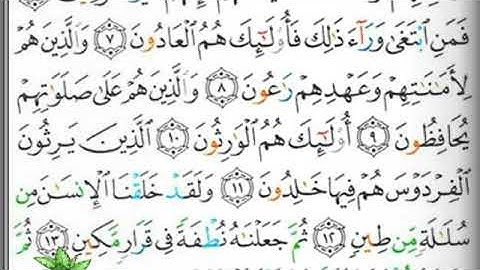 فَمَنِ ٱبْتَغَىٰ وَرَآءَ ذَٰلِكَ فَأُو۟لَـٰٓئِكَ هُمُ ٱلْعَادُونَ ٧ وَٱلَّذِينَ هُمْ
لِأَمَـٰنَـٰتِهِمْ وَعَهْدِهِمْ رَٰعُونَ ٨ وَٱلَّذِينَ هُمْ عَلَىٰ صَلَوَٰتِهِمْ
يُحَافِظُونَ ٩ أُو۟لَـٰٓئِكَ هُمُ ٱلْوَٰرِثُونَ ١٠ ٱلَّذِينَ يَرِثُونَ
ٱلْفِرْدَوْسَ هُمْ فِيهَا خَـٰلِدُونَ ١١ وَلَقَدْ خَلَقْنَا ٱلْإِنسَـٰنَ مِن
سُلَـٰلَةٍ مِّن طِينٍ ١٢ ثُمَّ جَعَلْنَـٰهُ نُطْفَةً فِى قَرَارٍ مَّكِينٍ ١٣ ثُمَّ